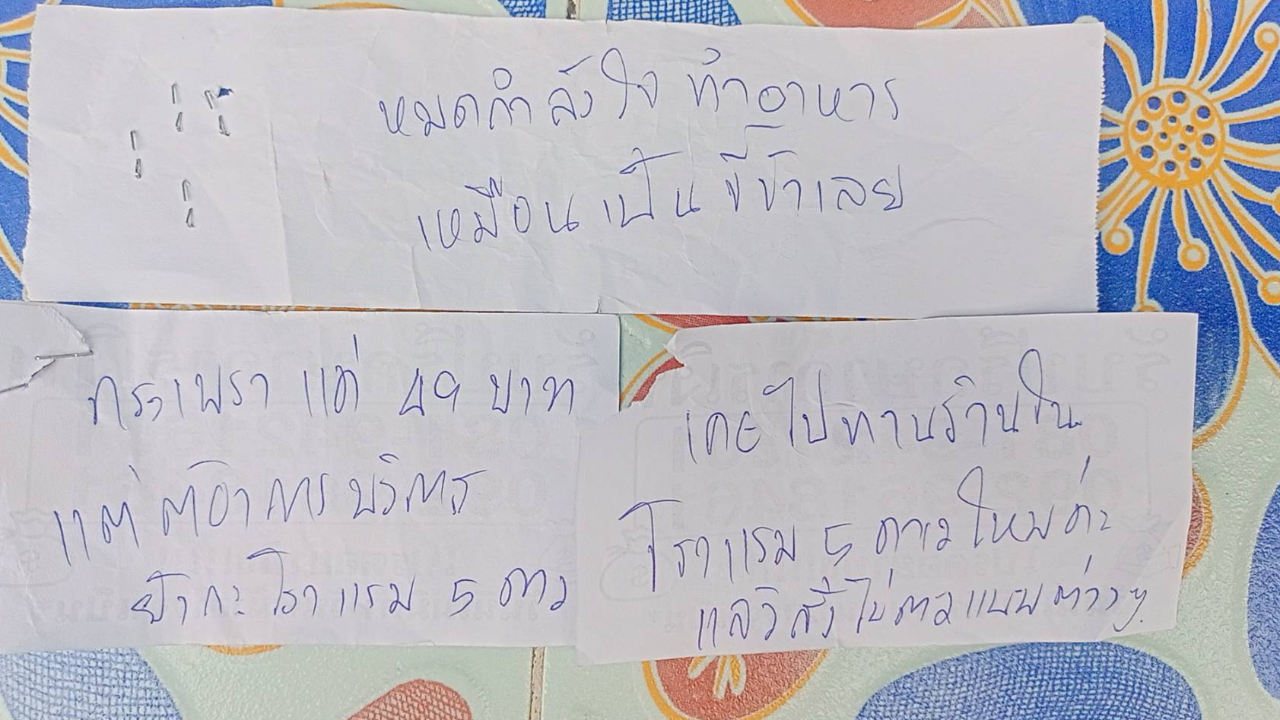 หมดกำลังใจ ทำอาหาร
เหมือนเป็นขี้ข้าเลย
กระเพรา แค่ 49 บาท
แต่ต้องการบริการ
ยังกะโรงแรม 5 ดาว
เคยไปทานร้านใน
โรงแรม 5 ดาวไหมค่ะ
แล้วสั่งไข่ดาวแบบต่างๆ